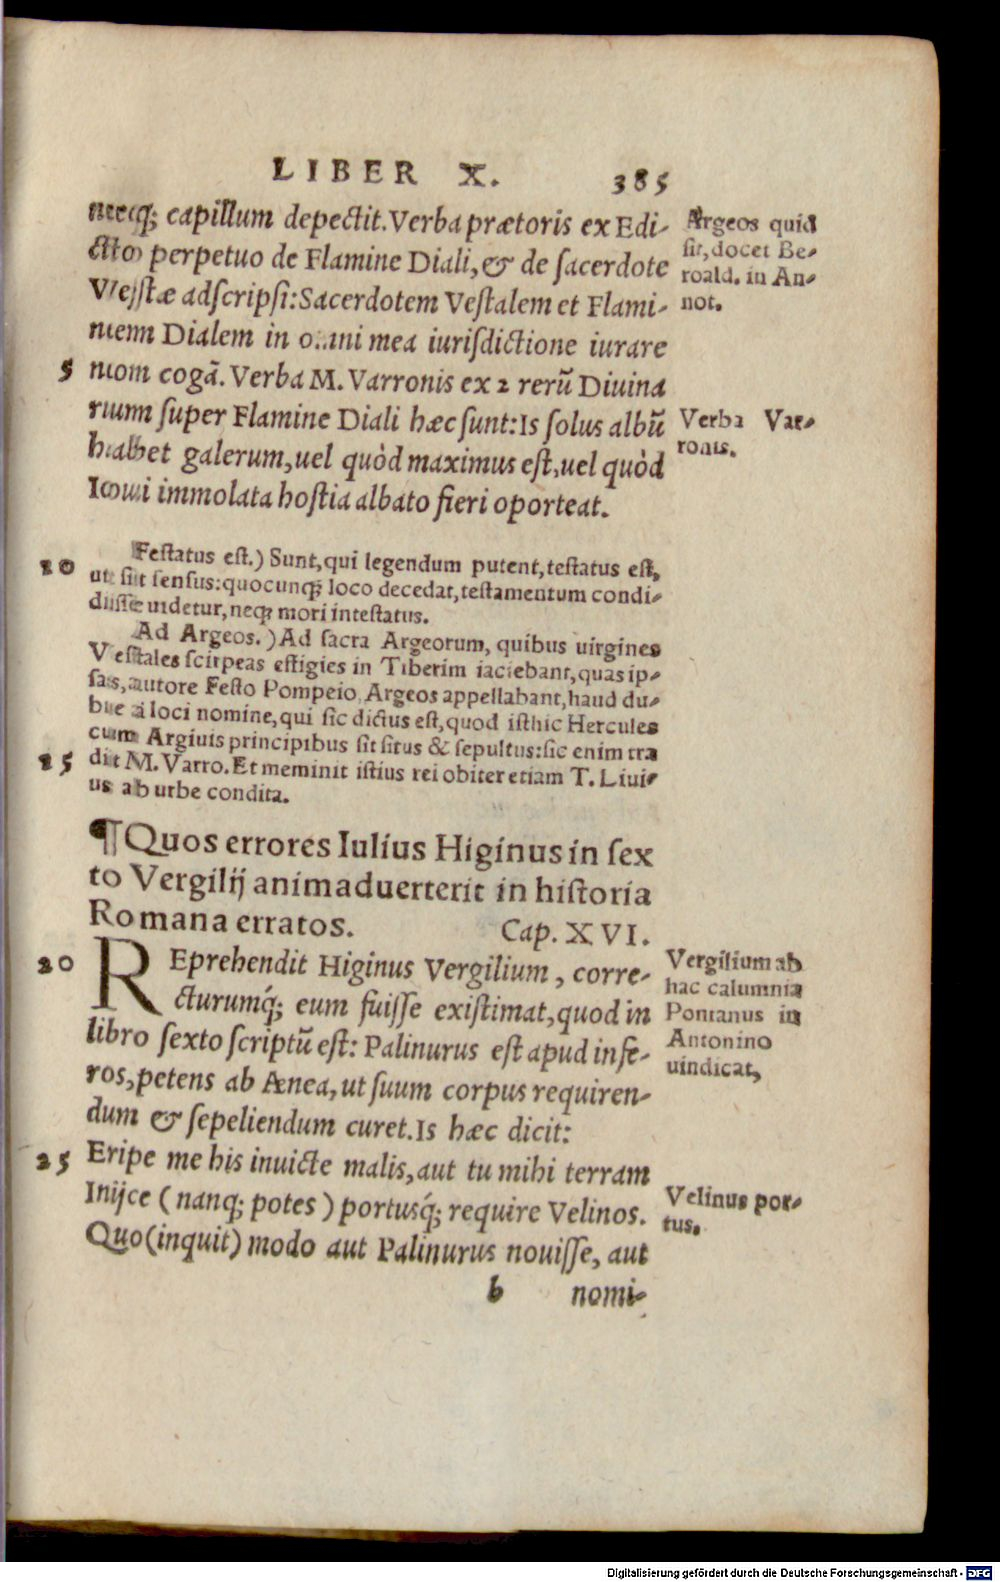 LIBER X. 385
necq́; capillum depectit. Verba prætoris ex Edi-
cto perpetuo de Flamine Diali, & de sacerdote
Vestæ adscripsi: Sacerdotem Vestalem et Flami-
nem Dialem in omni mea iurisdictione iurare
5 non cogā. Verba M. Varronis ex 2 rerū Diuina
rum super Flamine Diali hæc sunt: Is solus albū
habet galerum, uel quòd maximus est, uel quòd
Ioui immolata hostia albato fieri oporteat.
Argeos quid
sit, docet Be-
roald. in An-
not.
Verba Var-
ronis.
Festatus est.) Sunt, qui legendum putent, testatus est,
10 ut sit sensus: quocunq; loco decedat, testamentum condi-
disse uidetur, neq; mori intestatus.
Ad Argeos.) Ad sacra Argeorum, quibus uirgines
Vestales scirpeas effigies in Tiberim iaciebant, quas ip-
sas, autore Festo Pompeio, Argeos appellabant, haud du-
bie à loci nomine, qui sic dictus est, quod isthic Hercules
cum Argiuis principibus sit situs & sepultus: sic enim tra
15 dit M. Varro. Et meminit istius rei obiter etiam T. Liui-
us ab urbe condita.
¶ Quos errores Iulius Higinus in sex
to Vergilij animaduerterit in historia
Romana erratos. Cap. XVI.
20 REprehendit Higinus Vergilium, corre-
cturumq́; eum fuisse existimat, quod in
libro sexto scriptū est: Palinurus est apud infe-
ros, petens ab Ænea, ut suum corpus requiren-
dum & sepeliendum curet. Is hæc dicit:
25 Eripe me his inuicte malis, aut tu mihi terram
Inijce (nanq; potes) portusq́; require Velinos.
Quo (inquit) modo aut Palinurus nouisse, aut
Vergilium ab
hac calumnia
Pontanus in
Antonino
uindicat,
Velinus por-
tus.
b nomi-
Digitalisierung gefördert durch die Deutsche Forschungsgemeinschaft - DFG